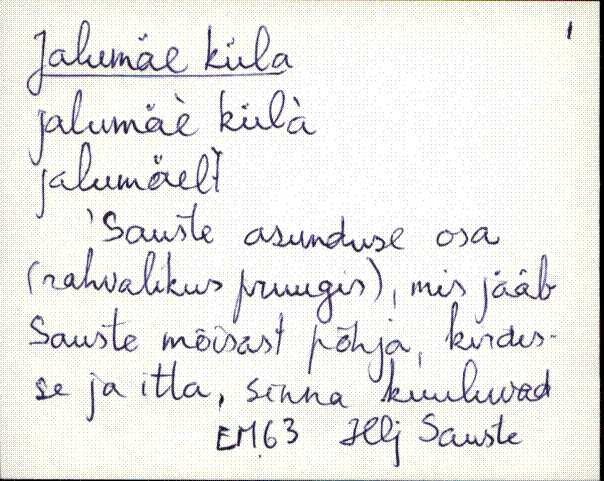 1
Jalumäe küla
jalumäè külà
jalumäelt
'Sauste asunduse osa
(rahvalikus pruugis), mis jääb
Sauste mõisast põhja, kirdes-
se ja itta, sinna kuuluvad
EM63 Hlj Sauste